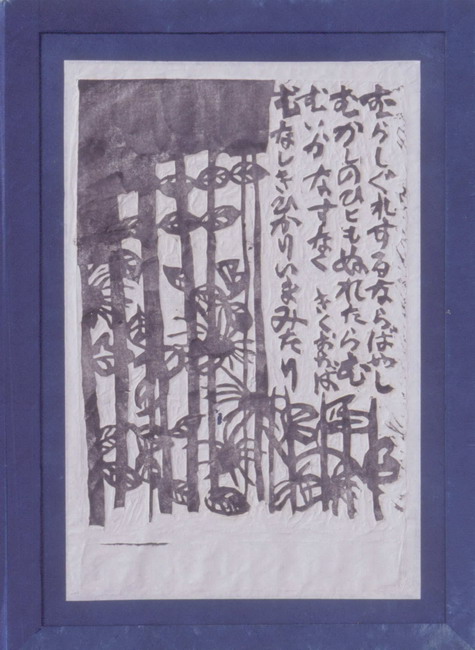 むらしぐれするならばやし
むかしのひともぬれたらむ
むいかなすなく きくおちば
むなしきひかりいまみたり